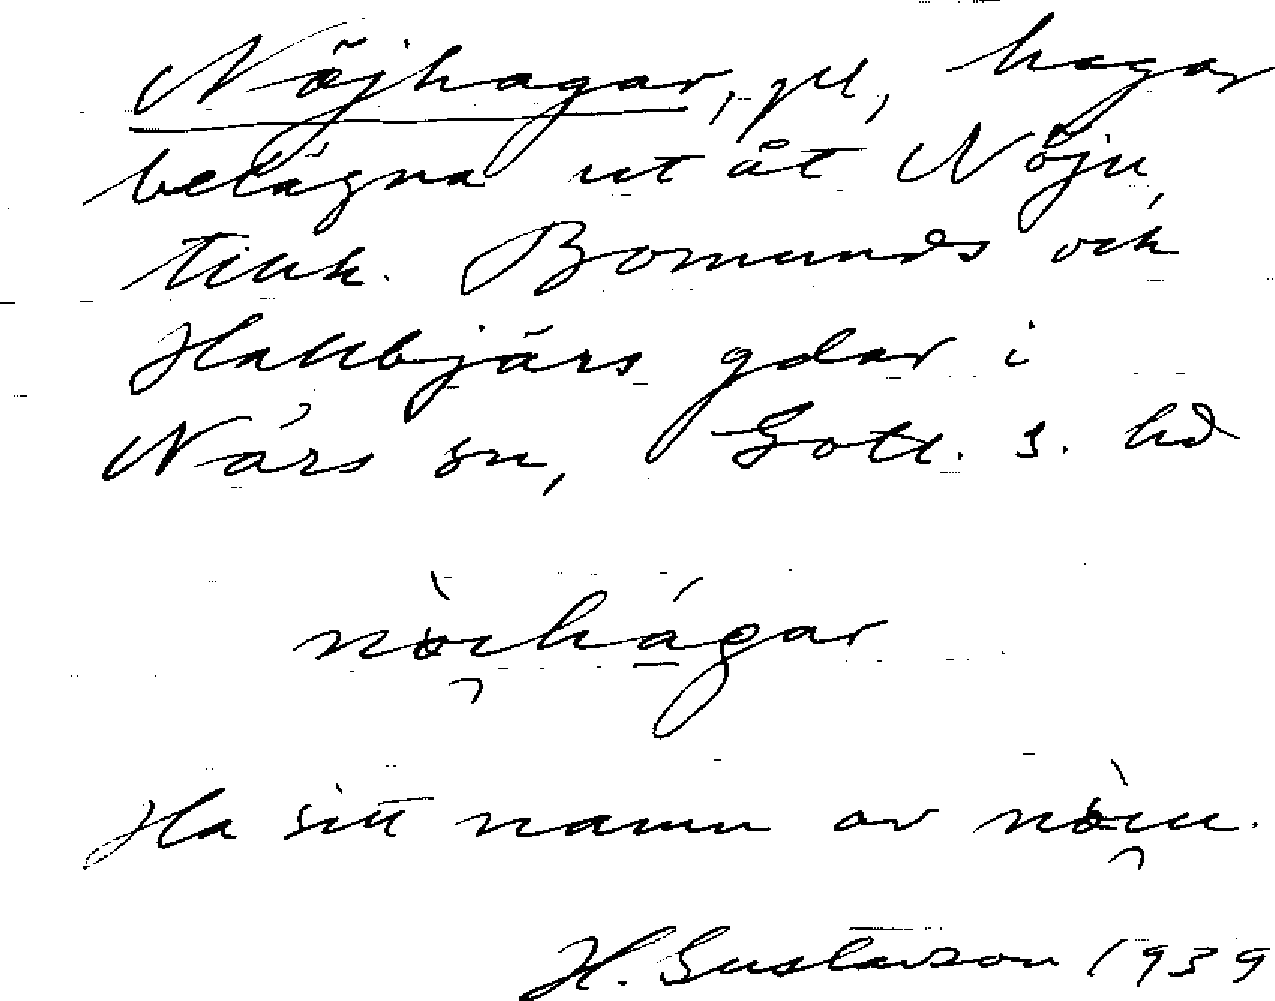 Nöjhagar, pl, hagar
belägna ut åt Nöju,
tillh. Bomunds och
Hallbjärs gdar i
När sn, Gotl. s. hd
nòi̯hágar
Ha sitt namn av nòi̯u.
H. Gustavson 1939